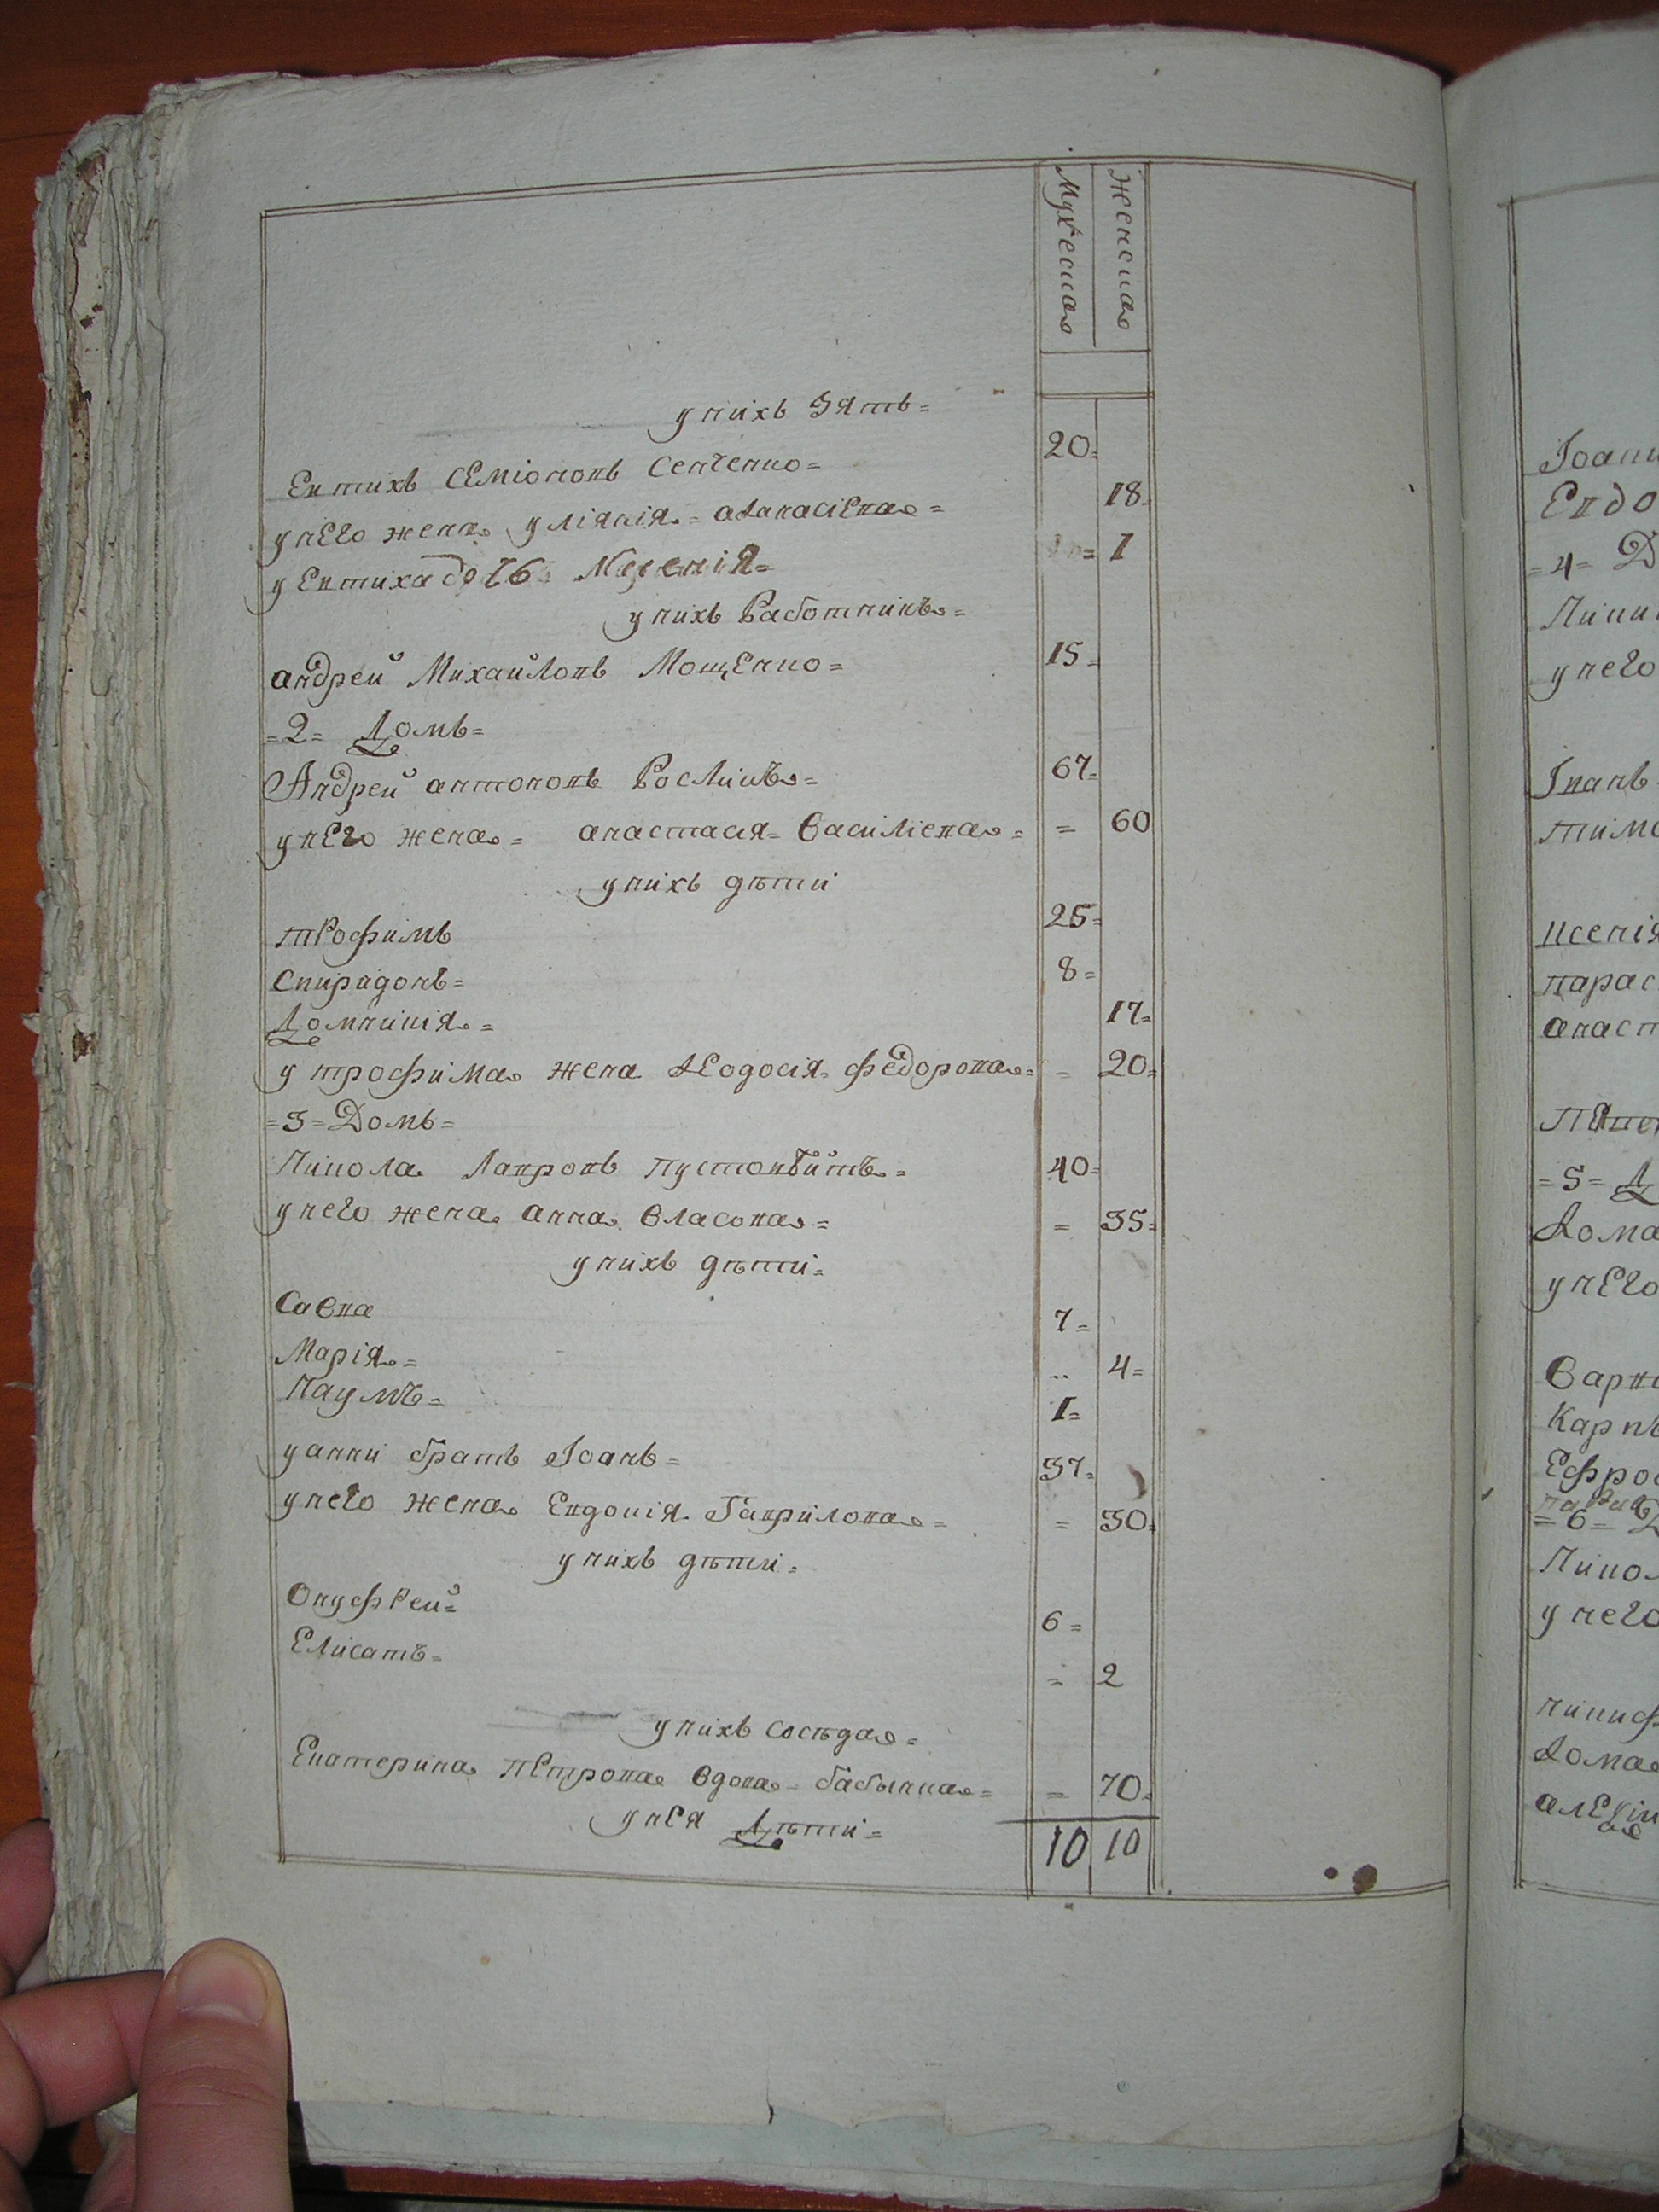 Мужеская Женская
у нихъ зять=
Евтихъ Семіоновъ Сенченко= 20=
у него жена Уліянія= аѳанасіева= 18=
у Евтиха дочь Ксенія= = 1
у нихъ Работникъ=
андрей Михайловъ Мощенко= 15=
=2= Домъ=
Андрей антоновъ Рослікъ= 67=
у него жена= анастасія= Василіева= = 60
у нихъ дѣти
трофимъ 25=
Спиридонъ= 8=
Домникія= 17=
у трофима жена Ѳеодосія федорова= = 20=
=3= Домъ=
Никола Лавровъ пустовѣйтъ= 40=
у него жена анна Власова= = 35=
у нихъ дѣти=
Савва 7=
Марія= .. 4=
Наумъ= 1=
у анни братъ Іоанъ= 37=
у него жена Евдокія Гаврилова= = 30=
у нихъ дѣти=
Онуфрей= 6=
Елисатъ= = 2
у нихъ сосѣда=
Екатерина петрова вдова= бабычка= = 70=
у нея Дѣти= 10 10
Іоанн
Евдо
=4= Д
Ники
у него
Іванъ
тимо
ксенія
парас
анаст
=5= Д
Ѳома
у него
Варва
Карпъ
Ефро
=6= Д
Никол
у него
никиф
Ѳома